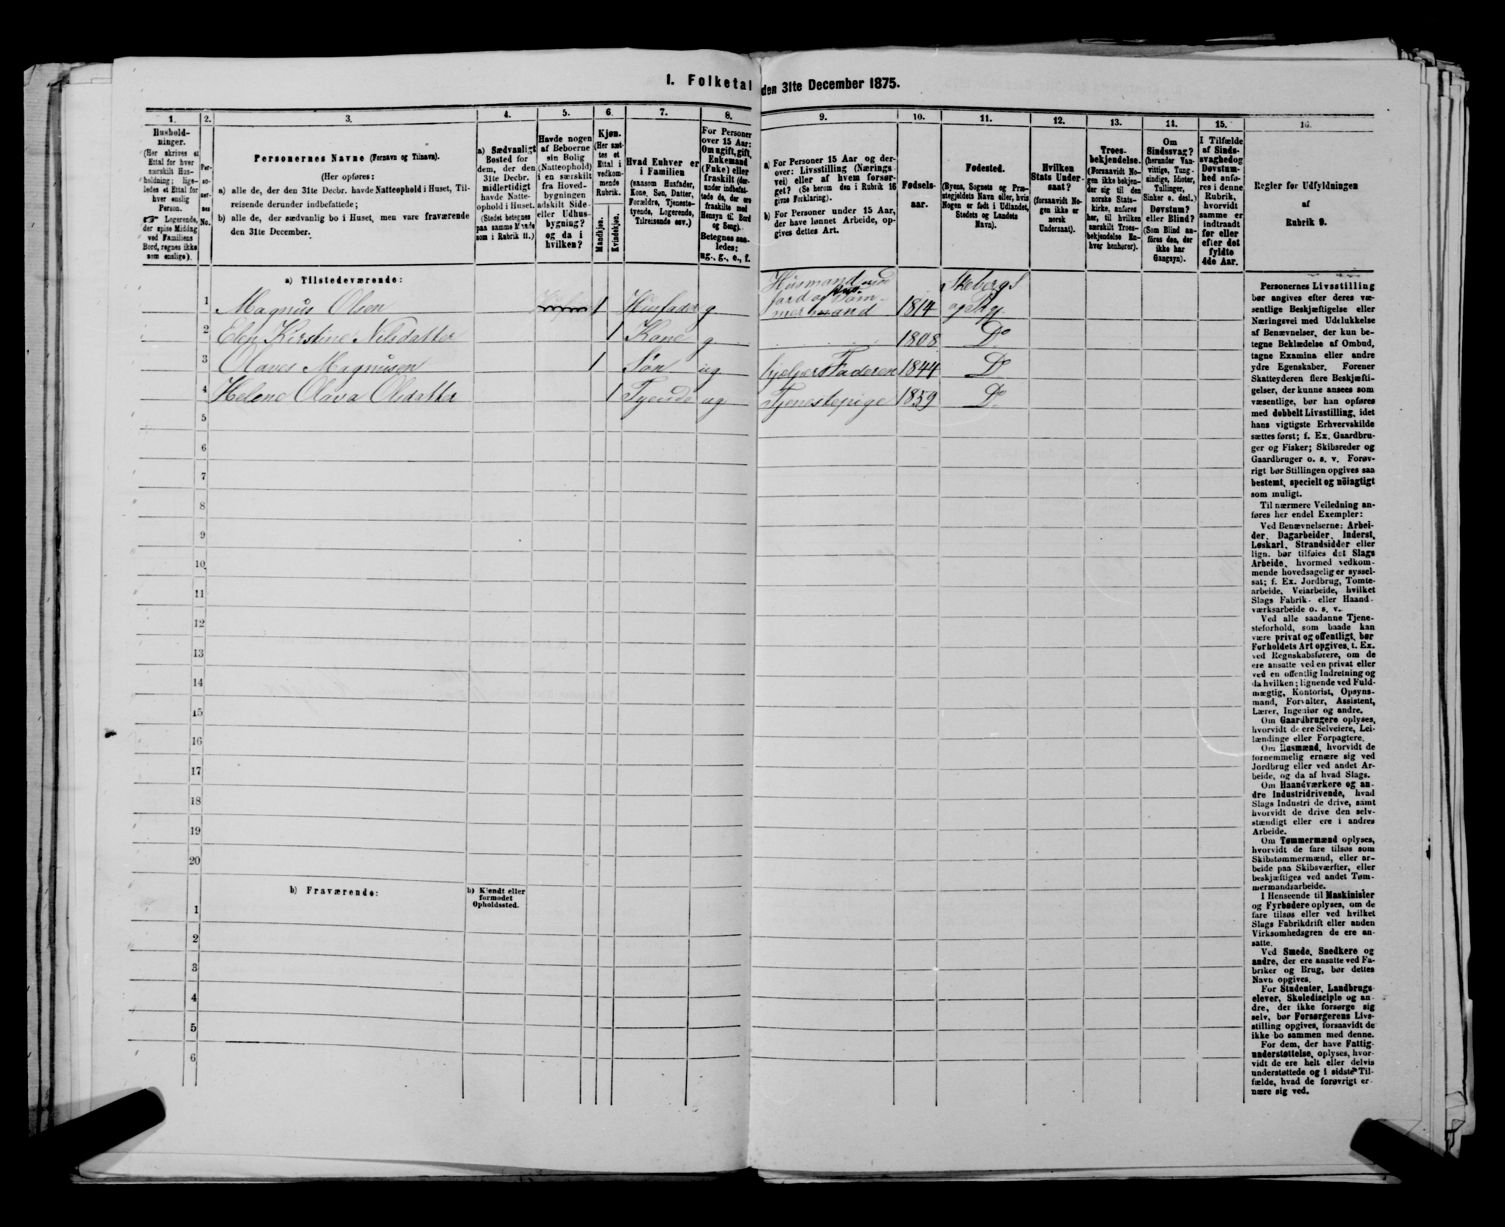 I. Folketal den 31te December 1875.
1.
Hushold-
ninger.
(Her skrives et
Ettal for hver
særskilt Hus-
holdning; lige-
ledes et Ettal for
hver enslig
Person.
☞ Logerende,
der spise Middag
ved Familiens
Bord, regnes ikke
som enslige).
2.
Per-
so-
ner-
nes
No.
3.
Personernes Navne (Fornavn og Tilnavn).
(Her opføres:
a) alle de, der den 31te Decbr. havde Natteophold i Huset, Til-
reisende derunder indbefattede;
b) alle de, der sædvanlig bo i Huset, men vare fraværende
den 31te December.
4.
a) Sædvanligt
Bosted for
dem, der den
31te Decbr.
midlertidigt
havde Natte-
ophold i Huset.
(Stedet betegnes
paa samme Maade
som i Rubrik 11.)
5.
Havde nogen
af Beboerne
sin Bolig
(Natteophold)
i en særskilt
fra Hoved-
bygningen
adskilt Side-
eller Udhus-
bygning?
og da i
hvilken?
6.
Kjøn.
(Her sæt-
tes et
Ettal i
vedkom-
mende
Rubrik.
Mandkjøn.
Kvindekjøn.
7.
Hvad Enhver er
i Familien
(saasom Husfader,
Kone, Søn, Datter,
Forældre, Tjeneste-
tyende, Logerende,
Tilreisende osv.)
8.
For Personer
over 15 Aar:
Om ugift, gift,
Enkemand
(Enke) eller
fraskilt (der-
under indbefat-
tede de, der ere
fraskilte med
Hensyn til Bord
og Seng).
Betegnes saa-
ledes:
ug., g., e., f.
9.
a) For Personer 15 Aar og der-
over: Livsstilling (Nærings-
vei) eller af hvem forsør-
get? (Se herom den i Rubrik 16
givne Forklaring).
b) For Personer under 15 Aar,
der have lønnet Arbeide, op-
gives dettes Art.
10.
Fødsels-
aar.
11.
Fødested.
(Byens, Sognets og Præ-
stegjeldets Navn eller, hvis
Nogen er født i Udlandet,
Stedets og Landets
Navn).
12.
Hvilken
Stats Under-
saat?
(forsaavidt No-
gen ikke er
norsk
Undersaat).
13.
Troes-
bekjendelse.
(Forsaavidt No-
gen ikke bekjen-
der sig til den
norske Stats-
kirke, anføres
her, til hvilken
særskilt Troes-
bekjendelse En-
hver henhører).
14.
Om
Sindssvag?
(herunder Van-
vittige, Tung-
sindige, Idioter,
Tullinger,
Sinker o. desl.)
Døvstum?
eller Blind?
(Som Blind an-
føres den, der
ikke har
Gangsyn).
15.
I Tilfælde
af Sinds-
svaghed og
Døvstum-
hed anfø-
res i denne
Rubrik,
hvorvidt
samme er
indtraadt
før eller
efter det
fyldte
4de Aar.
16.
Regler for Udfyldningen
af
Rubrik 9.
a) Tilstedeværende:
1 Magnus Olsen 1 Husfader g Husmand med Jord og Tømmermand 1814 Skebergs og Sky
2 Elen Kirstine Nilsdatter 1 Kone g 1808 Do
3 Olaves Magnusen 1 Søn ug hjelper Faderen 1844 Do
4 Helene Olava Olsdatter 1 Tyende ug Tjenestepige 1859 Do
5
6
7
8
9
10
11
12
13
14
15
16
17
18
19
20
b) Fraværende:
b) Kjendt eller
formodet
Opholdssted.
1
2
3
4
5
6
Personernes Livsstilling
bør angives efter deres væ-
sentlige Beskjæftigelse eller
Næringsvei med Udelukkelse
af Benævnelser, der kun be-
tegne Beklædelse af Ombud,
tagne Examina eller andre
ydre Egenskaber. Forener
Skatteyderen flere Beskjæfti-
gelser, der kunne ansees som
væsentlige, bør han opføres
med dobbelt Livsstilling, idet
hans vigtigste Erhvervskilde
sættes først; f. Ex. Gaardbru-
ger og Fisker; Skibsreder og
Gaardbruger o. s. v. Forøv-
rigt bør Stillingen opgives saa
bestemt, specielt og nöiagtigt
som muligt.
Til nærmere Veiledning an-
føres her endel Exempler:
Ved Benævnelserne: Arbei-
der, Dagarbeider, Inderst,
Løskarl, Strandsidder eller
lign. bør tilføies det Slags
Arbeide, hvormed vedkom-
mende hovedsagelig er syssel-
sat; f. Ex. Jordbrug, Tomte-
arbeide, Veiarbeide, hvilket
Slags Fabrik- eller Haand-
værksarbeide o. s. v.
Ved alle saadanne Tjene-
steforhold, som baade kan
være privat og offentligt, bør
Forholdets Art opgives, t. Ex.
ved Regnskabsførere, om de
ere ansatte ved en privat eller
ved en offentlig Indretning og
da hvilken; lignende ved Fuld-
mægtig, Kontorist, Opsyns-
mand, Forvalter, Assistent,
Lærer, Ingeniør og andre.
Om Gaardbrugere oplyses,
hvorvidt de ere Selveiere, Lei-
lændinge eller Forpagtere.
Om Husmænd, hvorvidt de
fornemmelig ernære sig ved
Jordbrug eller ved andet Ar-
beide, og da af hvad Slags.
Om Haandværkere og an-
dre Industridrivende, hvad
Slags Industri de drive, samt
hvorvidt de drive den selv-
stændigt eller ere i andres
Arbeide.
Om Tømmermænd oplyses,
hvorvidt de fare tilsøs som
Skibstømmermænd, eller ar-
beide paa Skibsværfter, eller
beskjæftiges ved andet Tøm-
mermandsarbeide.
I Henseende til Maskinister
og Fyrbødere oplyses, om de
fare tilsøs eller ved hvilket
Slags Fabrikdrift eller anden
Virksomhedsgren de ere an-
satte.
Ved Smede, Snedkere og
andre, der ere ansatte ved Fa-
briker og Brug, bør dettes
Navn opgives.
For Studenter, Landbrugs-
elever, Skoledisciple og an-
dre, der ikke forsørge sig
selv, bør Forsørgerens Livs-
stilling opgives, forsaavidt de
ikke bo sammen med denne.
For dem, der have Fattig-
understøttelse, oplyses, hvor-
vidt de ere helt eller delvis
understøttede og i sidste Til-
fælde, hvad de forøvrigt er-
nære sig ved.